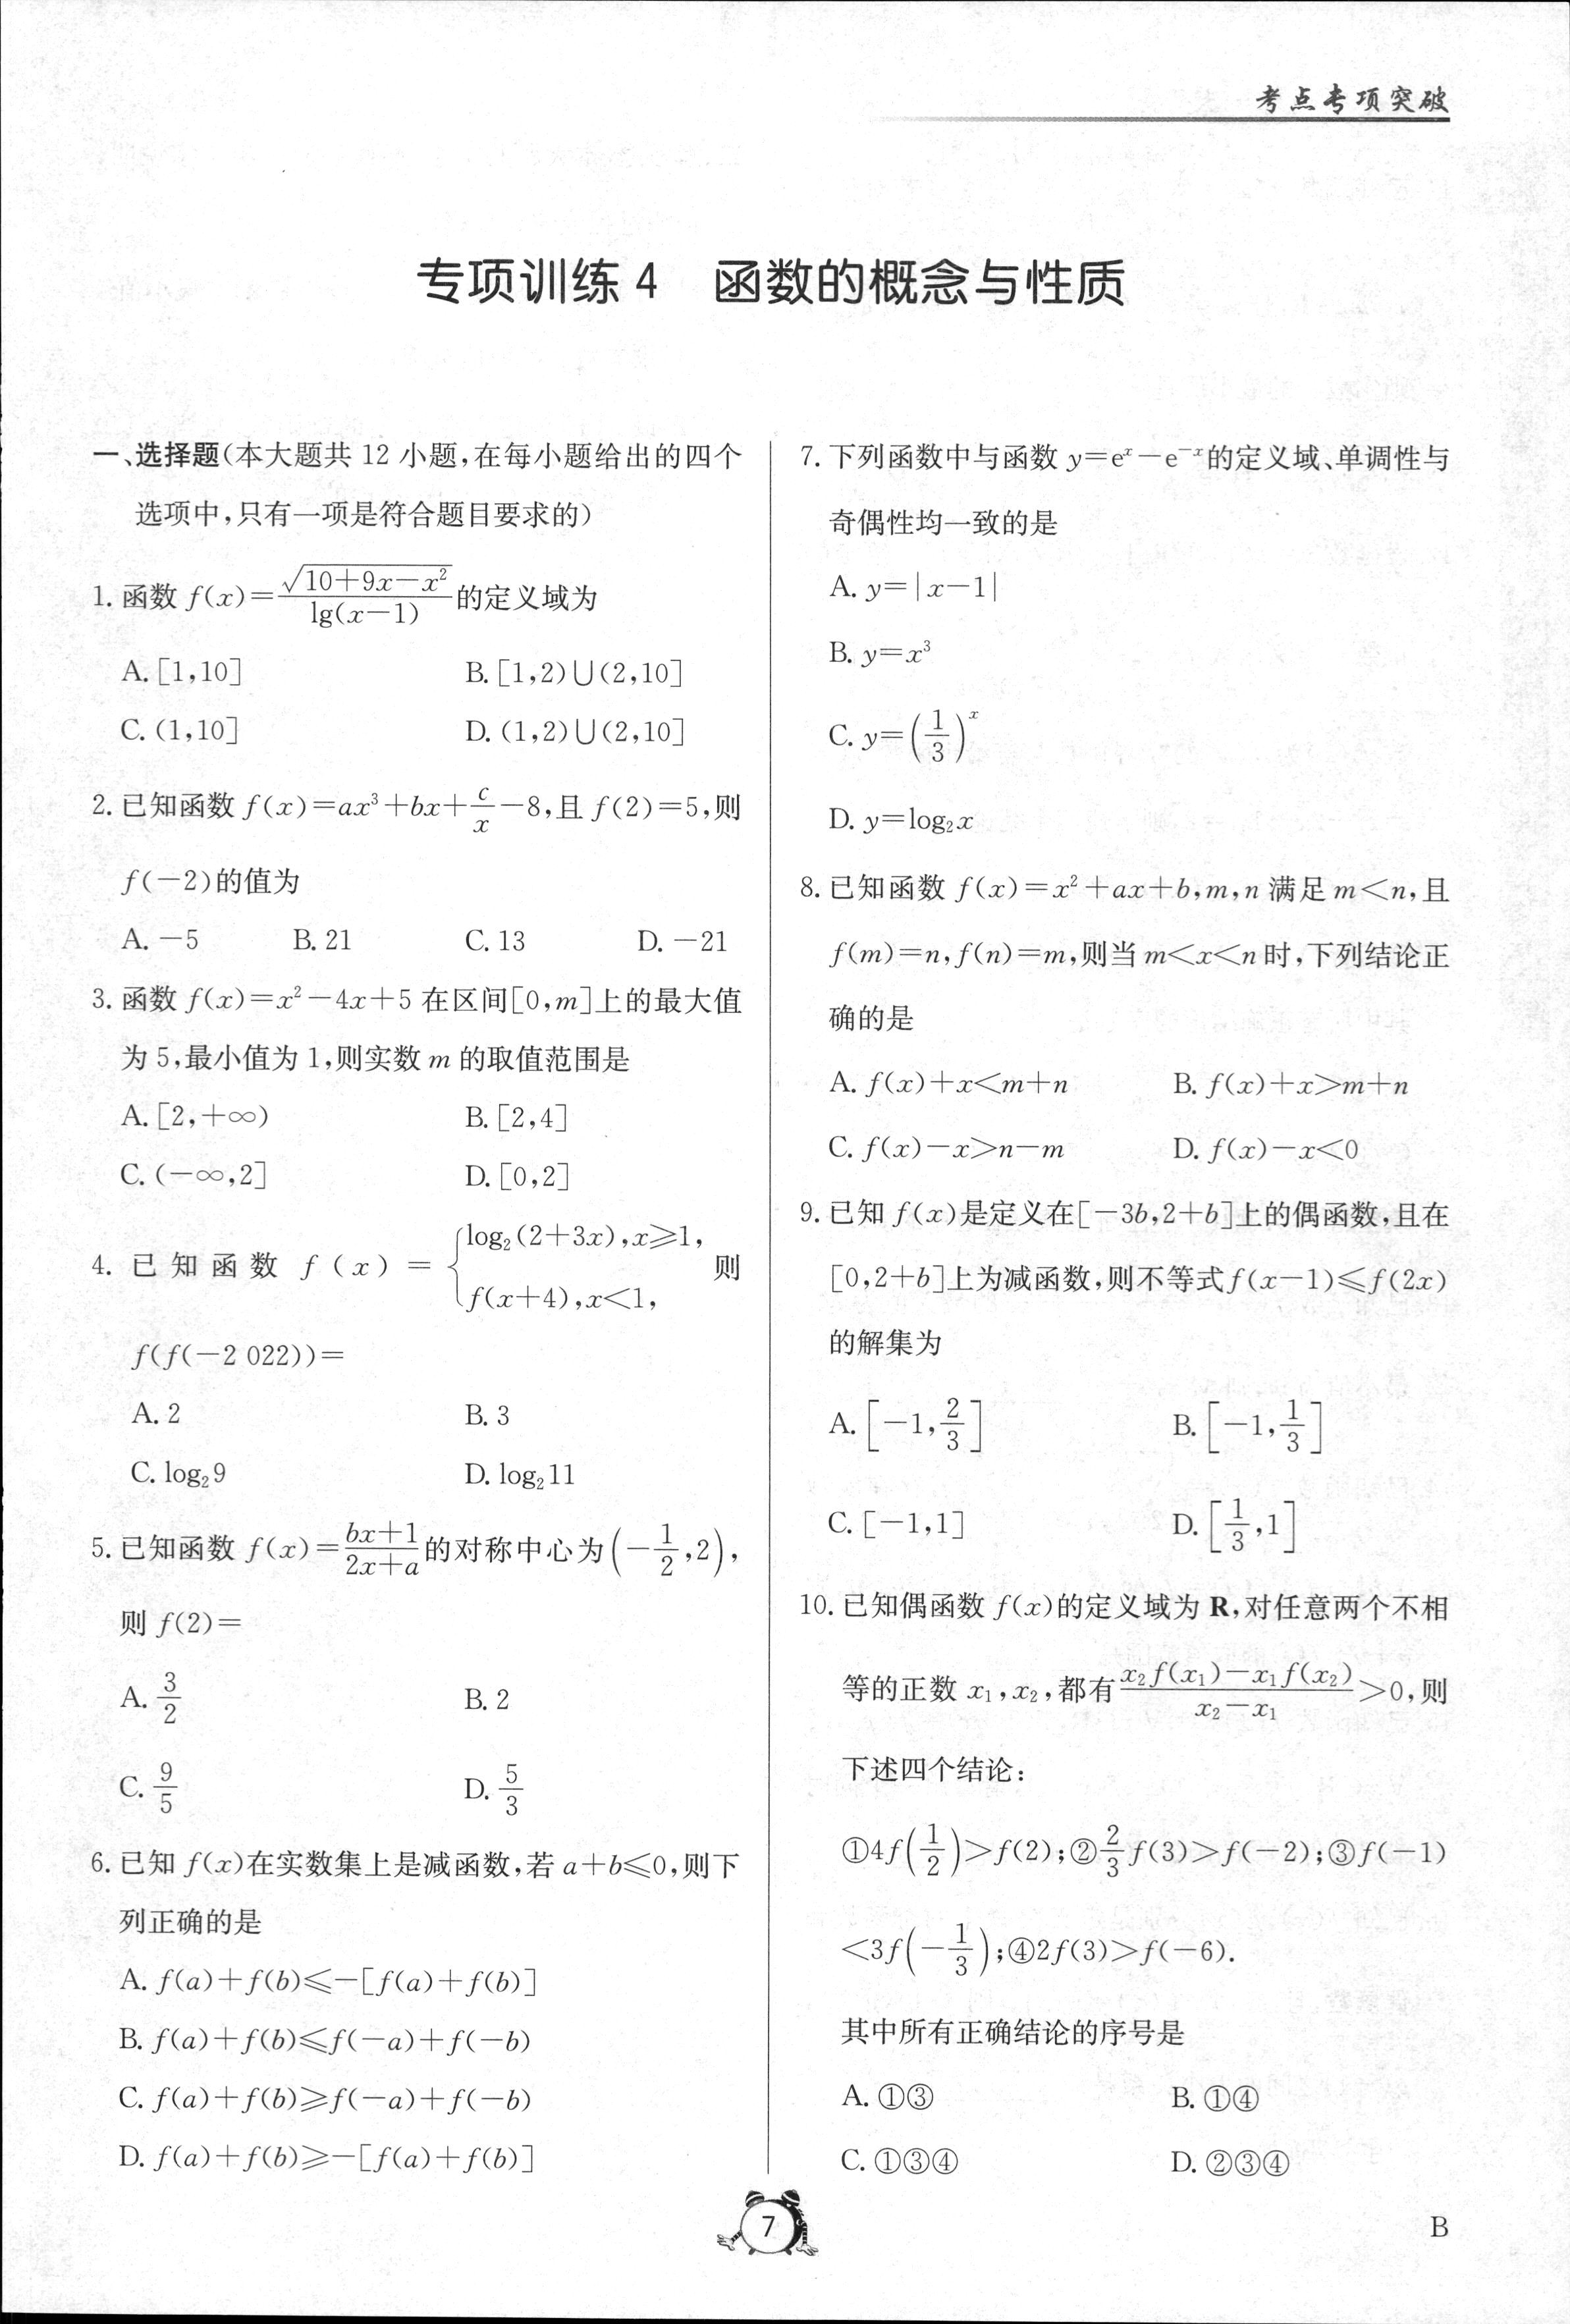 考点专项突破
专项训练4 函数的概念与性质
一、选择题(本大题共 12 小题,在每小题给出的四个
选项中,只有一项是符合题目要求的)
1. 函数 f(x)=√(10+9x−x²)/lg(x−1) 的定义域为
A. [1,10] B. [1,2)∪(2,10]
C. (1,10] D. (1,2)∪(2,10]
2. 已知函数 f(x)=ax³+bx+c/x−8,且 f(2)=5,则
f(−2)的值为
A. −5 B. 21 C. 13 D. −21
3. 函数 f(x)=x²−4x+5 在区间[0,m]上的最大值
为 5,最小值为 1,则实数 m 的取值范围是
A. [2,+∞) B. [2,4]
C. (−∞,2] D. [0,2]
4. 已知函数 f(x)={log₂(2+3x),x≥1, f(x+4),x<1, 则
f(f(−2 022))=
A. 2 B. 3
C. log₂9 D. log₂11
5. 已知函数 f(x)=(bx+1)/(2x+a) 的对称中心为(−1/2,2),
则 f(2)=
A. 3/2 B. 2
C. 9/5 D. 5/3
6. 已知 f(x)在实数集上是减函数,若 a+b≤0,则下
列正确的是
A. f(a)+f(b)≤−[f(a)+f(b)]
B. f(a)+f(b)≤f(−a)+f(−b)
C. f(a)+f(b)≥f(−a)+f(−b)
D. f(a)+f(b)≥−[f(a)+f(b)]
7. 下列函数中与函数 y=eˣ−e⁻ˣ的定义域、单调性与
奇偶性均一致的是
A. y=|x−1|
B. y=x³
C. y=(1/3)ˣ
D. y=log₂x
8. 已知函数 f(x)=x²+ax+b,m,n 满足 m<n,且
f(m)=n,f(n)=m,则当 m<x<n 时,下列结论正
确的是
A. f(x)+x<m+n B. f(x)+x>m+n
C. f(x)−x>n−m D. f(x)−x<0
9. 已知 f(x)是定义在[−3b,2+b]上的偶函数,且在
[0,2+b]上为减函数,则不等式 f(x−1)≤f(2x)
的解集为
A. [−1,2/3] B. [−1,1/3]
C. [−1,1] D. [1/3,1]
10. 已知偶函数 f(x)的定义域为 R,对任意两个不相
等的正数 x₁,x₂,都有 (x₂f(x₁)−x₁f(x₂))/(x₂−x₁)>0,则
下述四个结论:
①4f(1/2)>f(2);②2/3f(3)>f(−2);③f(−1)
<3f(−1/3);④2f(3)>f(−6).
其中所有正确结论的序号是
A. ①③ B. ①④
C. ①③④ D. ②③④
7
B